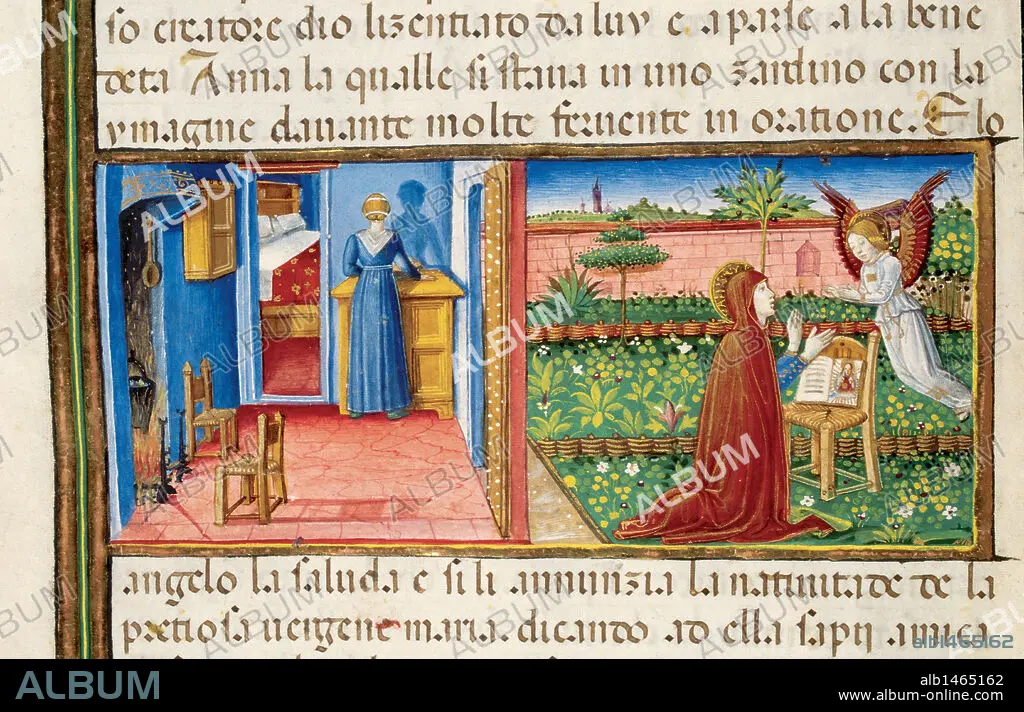 so creatore dio lizentiato da luy e aparse a la bene
deta Anna la qualle si staua in uno zardino con la
ymagine dauante molte feruente in oratione. E lo
angelo la saluda e si li anunzia la natiuitade de la
pretiosa uergene maria dicando ad ella sapij amica
alb1465162
ALBUM
alb1465162
www.album-online.com